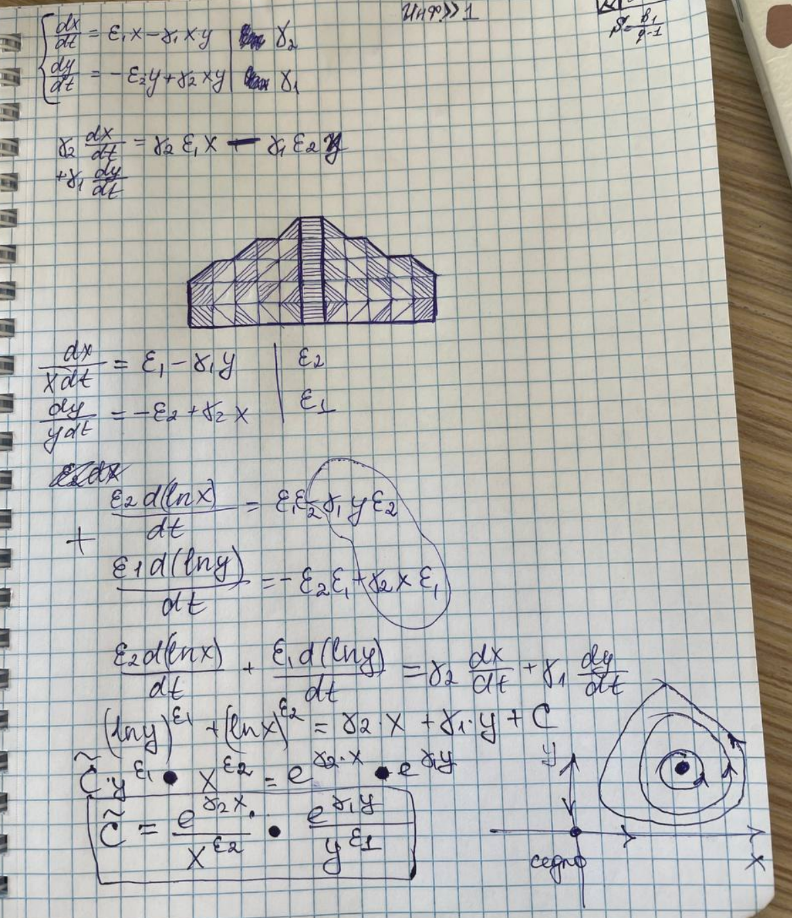 dx/dt = ε₁x − γ₁xy | γ₂
dy/dt = −ε₂y + γ₂xy | γ₁
γ₂ dx/dt = γ₂ε₁x − γ₁ε₂y
+γ₁ dy/dt
dx/xdt = ε₁ − γ₁y | ε₂
dy/ydt = −ε₂ + γ₂x | ε₁
ε₂d(lnx)/dt = ε₁ε₂ − γ₁yε₂
+
ε₁d(lny)/dt = −ε₂ε₁ + γ₂xε₁
ε₂d(lnx)/dt + ε₁d(lny)/dt = γ₂ dx/dt + γ₁ dy/dt
(lny)^ε₁ + (lnx)^ε₂ = γ₂·x + γ₁·y + C
C̃·y^ε₁ • x^ε₂ = e^γ₂·x • e^γ₁y
C̃ = e^γ₂x/x^ε₂ • e^γ₁y/y^ε₁
y
x
седло